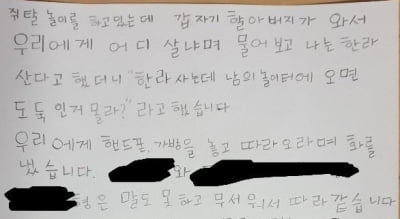 쥐탈 놀이를 하고있는데 갑자기 할아버지가 와서
우리에게 어디 살냐며 물어보고 나는 한라
산다고 했더니 "한라 사는데 남의 놀이터에 오면
도둑인거 몰라?" 라고 했습니다
우리에게 핸드폰, 가방을 놓고 따라오라며 화를
냈습니다. 와
형은 말도 못하고 무서워서 따라갔습니다